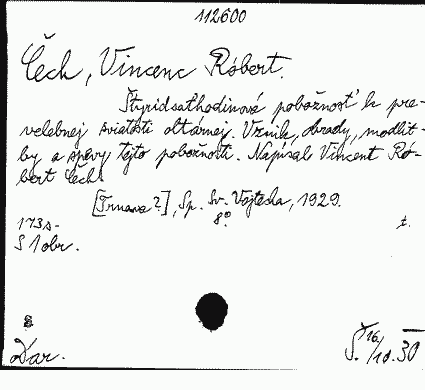 112600
Čech, Vincenc Róbert.
Štyridsaťhodinová pobožnosť k pre-
velebnej sviatosti oltárnej. Vznik, obrady, modlit-
by a spevy tejto pobožnosti. Napísal Vincent Ró-
bert Čech.
[Trnava?], Sp. Sv. Vojtecha, 1929.
8°.
173 s. t.
S 1 obr.
Dar. 16./10.30